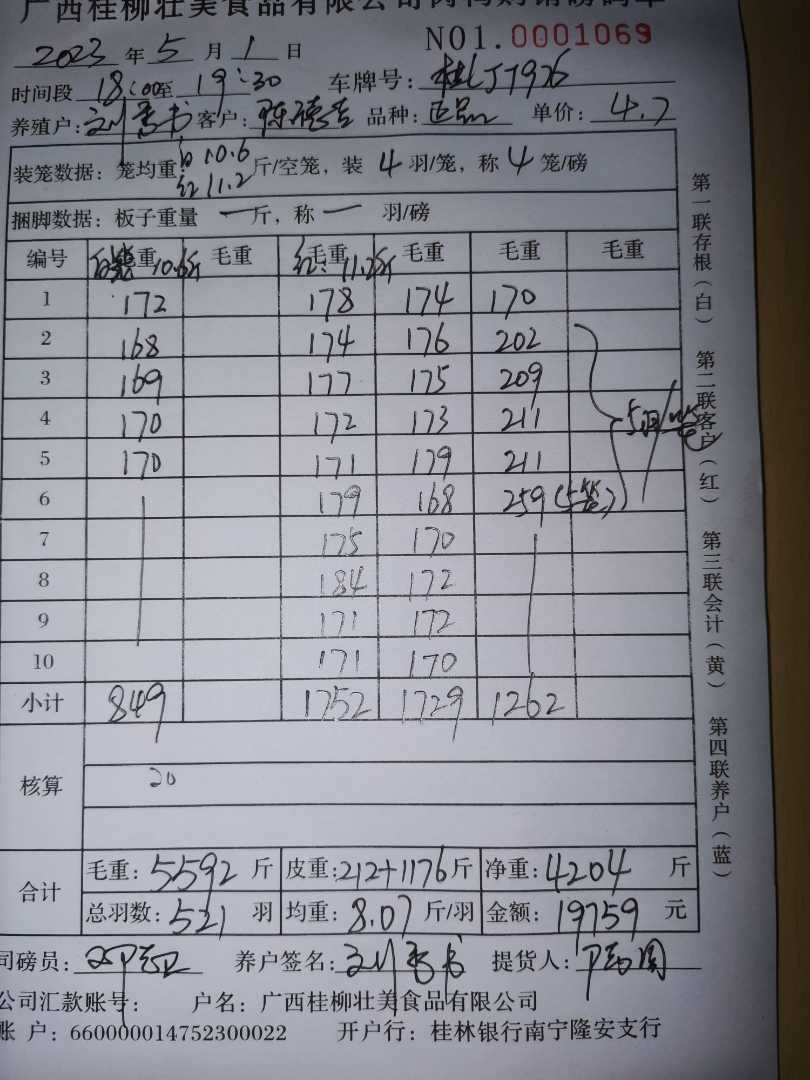 广西桂柳壮美食品有限公司肉鸭购销磅码单
2023 年 5 月 1 日 NO1.0001069
时间段 18:00至 19:30 车牌号: 桂LJ7926
养殖户: 客户: 陈德 品种: 正品 单价: 4.7
装笼数据: 笼均重 白 10.6 红 11.2 斤/空笼, 装 4 羽/笼, 称 4 笼/磅
捆脚数据: 板子重量 一 斤, 称 一 羽/磅
编号 毛重 白 10.6斤 毛重 毛重 红: 11.2斤 毛重 毛重 毛重
1 172 178 174 170
2 168 174 176 202
3 169 177 175 209
4 170 172 173 211 5羽/笼
5 170 171 179 211
6 179 168 259 (5笼)
7 175 170
8 184 172
9 171 172
10 171 170
小计 849 1752 1729 1262
核算 20
合计 毛重: 5592 斤 皮重: 212+1176 斤 净重: 4204 斤
总羽数: 521 羽 均重: 8.07 斤/羽 金额: 19759 元
司磅员: 养户签名: 提货人:
公司汇款账号: 户名: 广西桂柳壮美食品有限公司
账 户: 660000014752300022 开户行: 桂林银行南宁隆安支行
第一联存根(白) 第二联客户(红) 第三联会计(黄) 第四联养户(蓝)